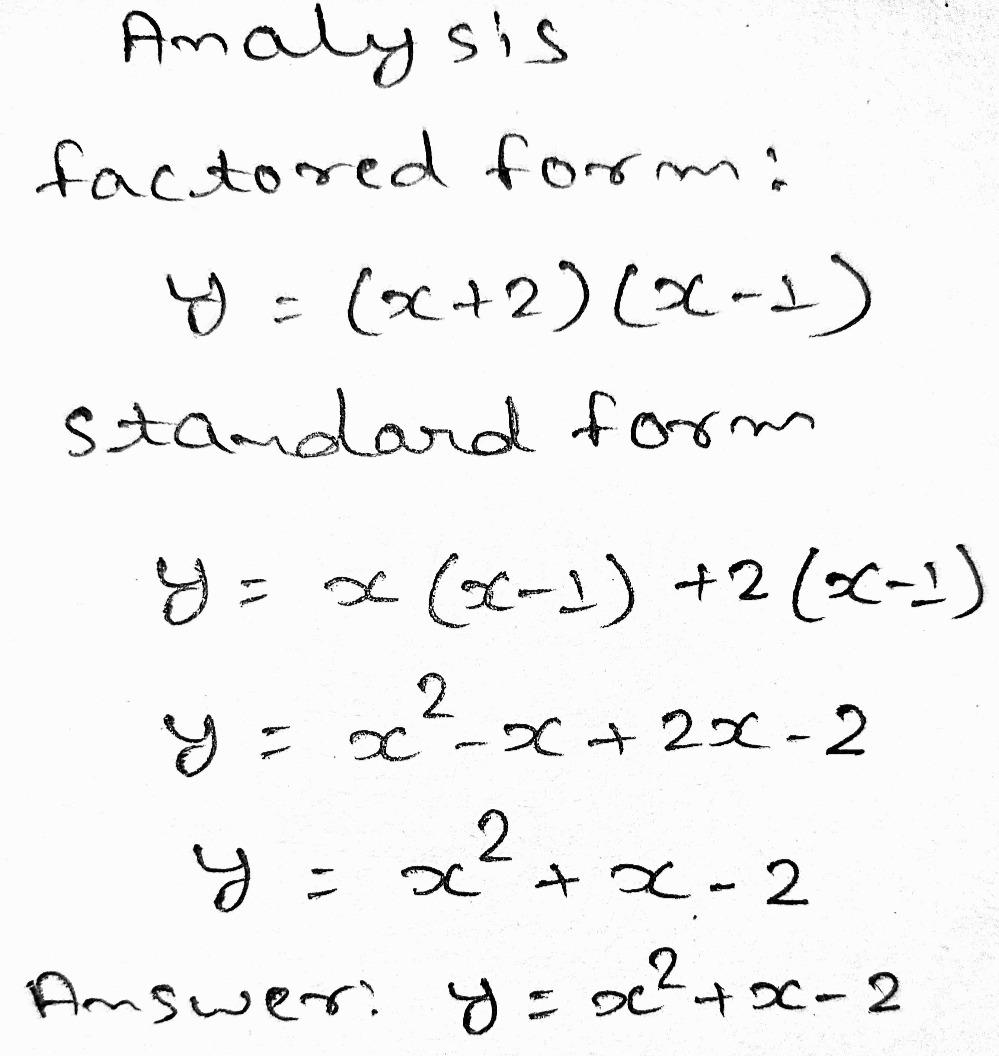 Analysis
factored form:
y = (x+2)(x-1)
standard form
y = x(x-1) +2(x-1)
y = x²-x+2x-2
y = x²+x-2
Answer: y = x²+x-2